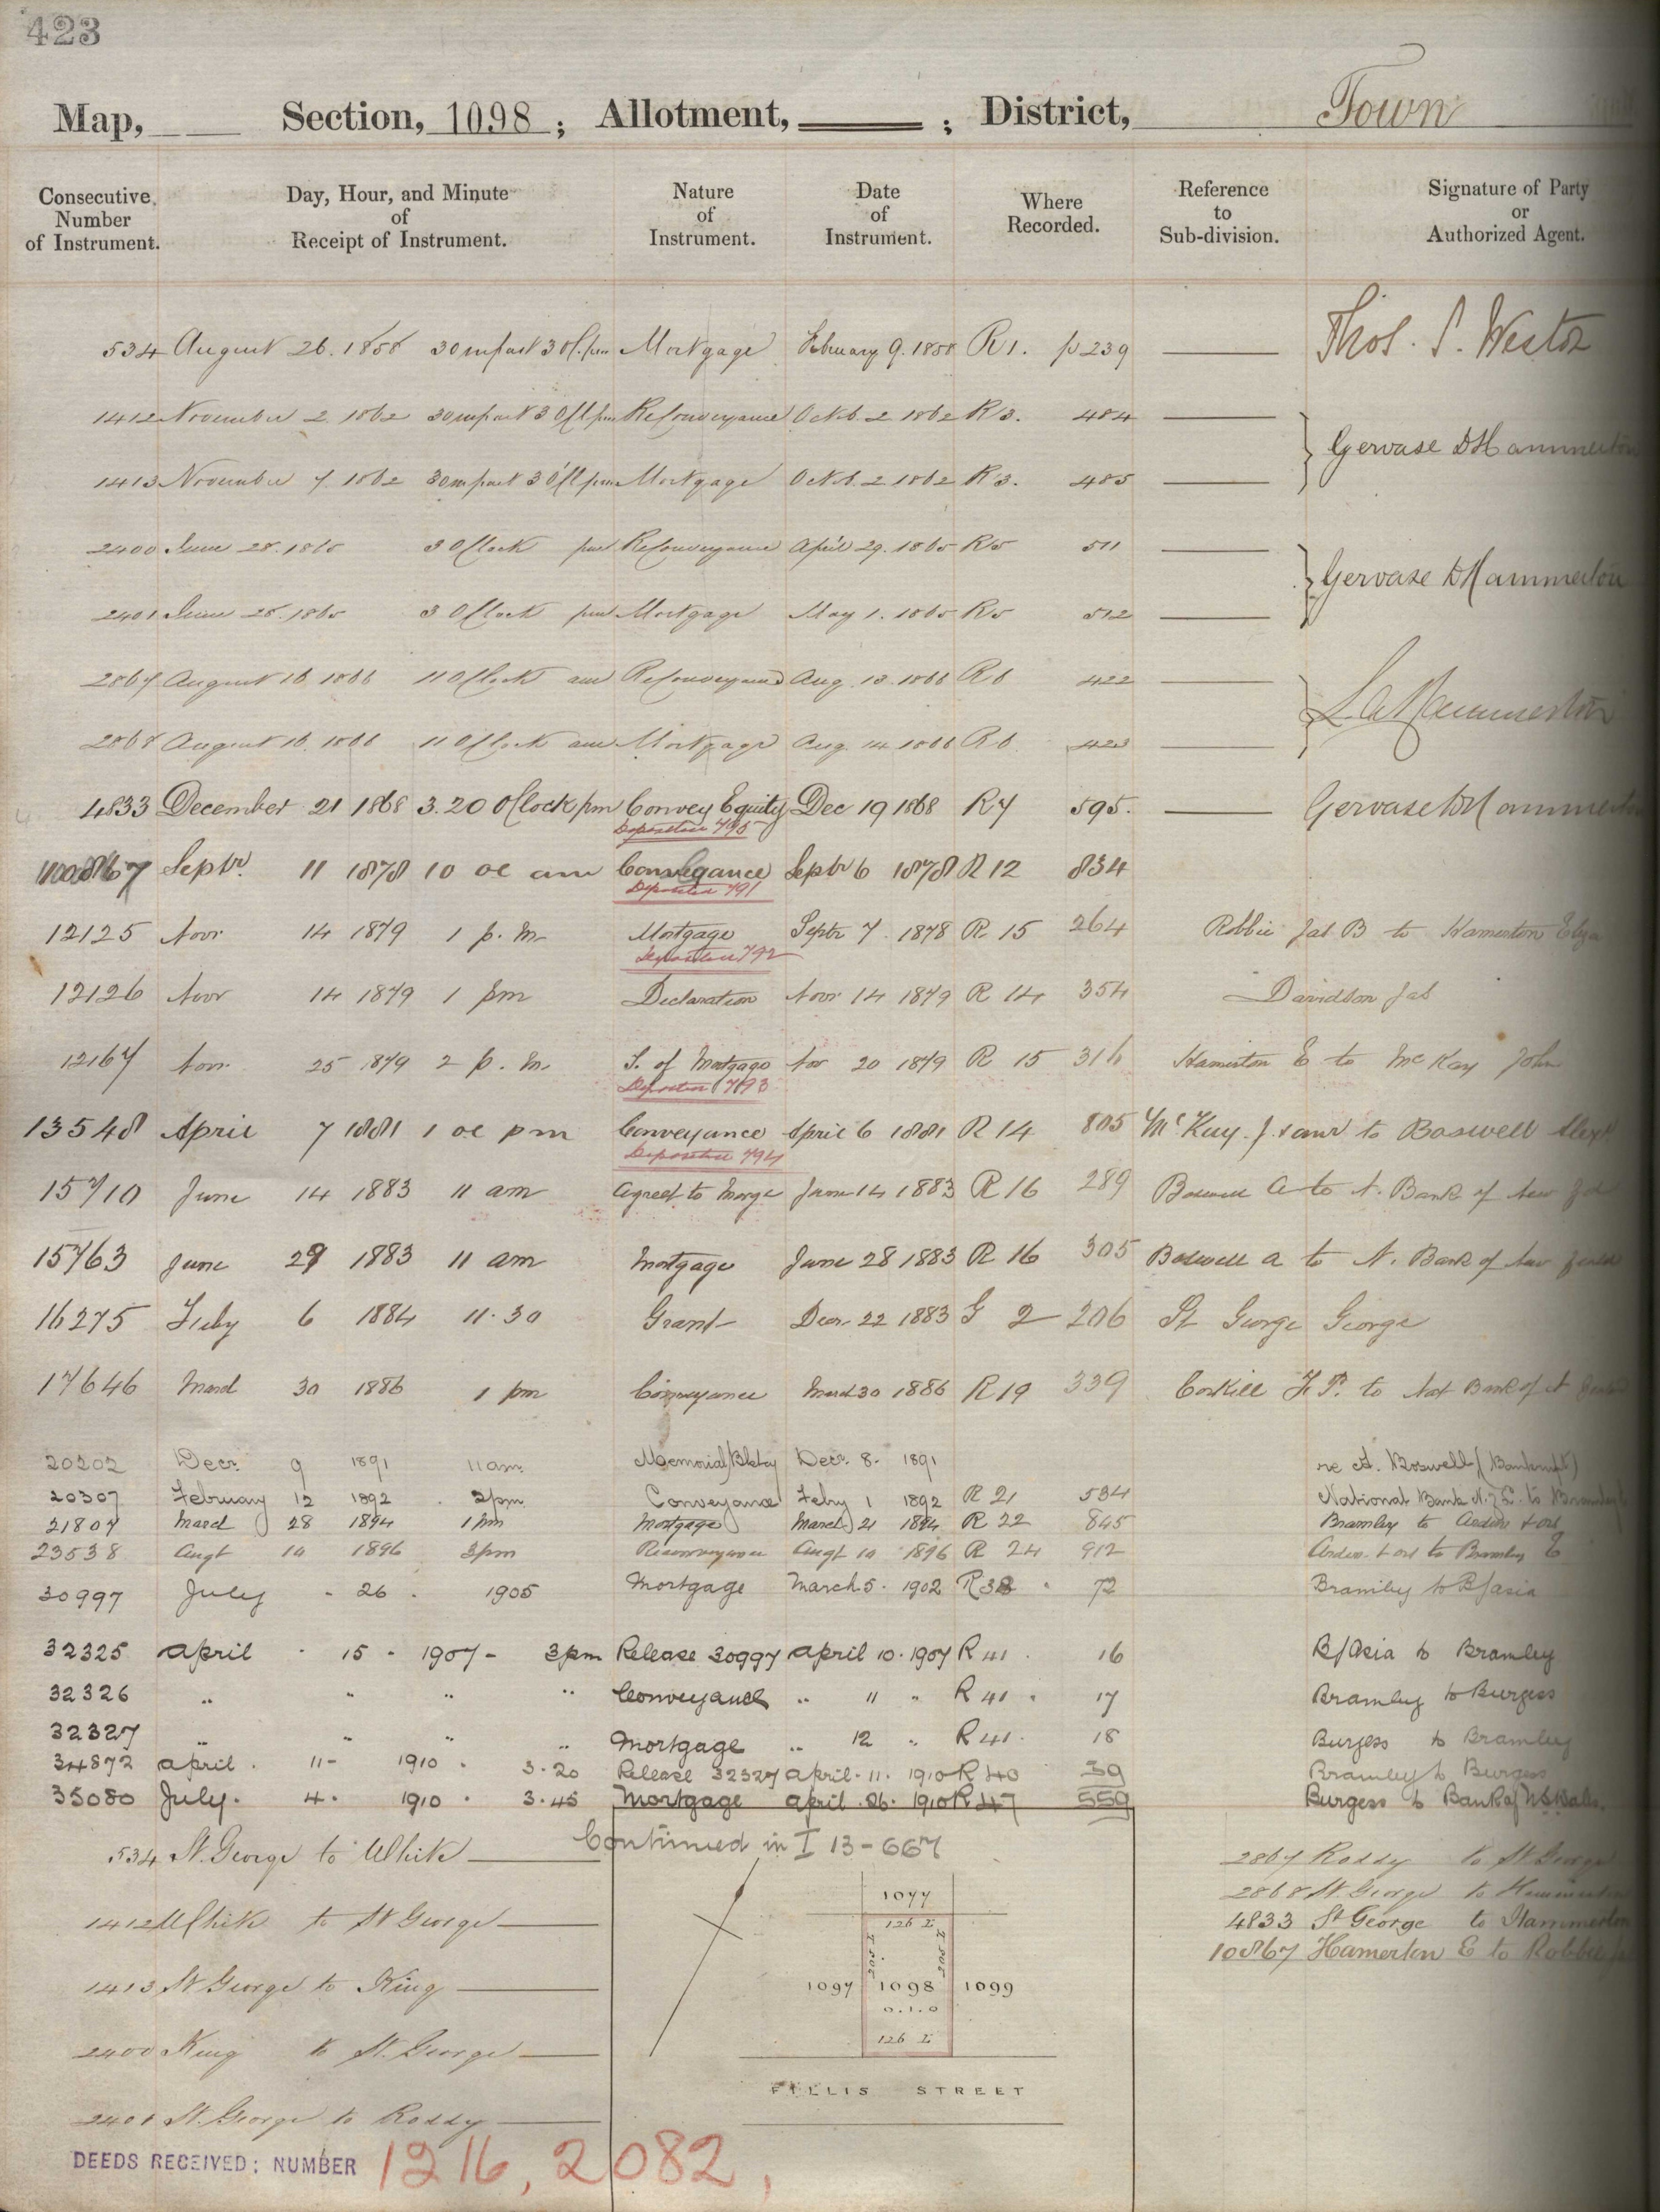 423
Map, Section, 1098 ; Allotment, ; District, Town
Consecutive Number of Instrument.
Day, Hour, and Minute of Receipt of Instrument.
Nature of Instrument.
Date of Instrument.
Where Recorded.
Reference to Sub-division.
Signature of Party or Authorized Agent.
534 August 26. 1858 30 m past 3 Mortgage February 9. 1858 R 1. p 239 Thos. S. Weston
1412 November 2. 1862 30 m past 3 Reconveyance Octb. 2 1862 R 3. 484
Gervase D Hammerton
1413 November 7. 1862 30 m past 3 Mortgage Octb. 2 1862 R 3. 485
2400 June 28. 1865 3 OClock pm Reconveyance April 29. 1865 R 5 511
Gervase D Hammerton
2401 June 28. 1865 3 OClock pm Mortgage May 1. 1865 R 5 512
2867 August 16 1866 11 OClock am Reconveyance Aug. 13. 1866 R 6 422
Hammerton
2868 August 16. 1866 11 OClock am Mortgage Aug. 14 1866 R 6. 423
4833 December 21 1868 3.20 OClock pm Convey Equity Dec 19 1868 R 7 595. Gervase D Hammerton
Deposited 795
10867 Septr. 11 1878 10 oc am Conveyance Septr 6 1878 R 12 834
Deposited 791
12125 Novr 14 1879 1 p.m Mortgage Septr 7. 1878 R 15 264 Robbie Jas B to Hamerton Eliza
Deposited 792
12126 Novr 14 1879 1 pm Declaration Novr 14 1879 R 14 354 Davidson Jas
12167 Novr. 25 1879 2 p.m T. of Mortgage Nov 20 1879 R 15 316 Hamerton E to McKay John
Deposited 793
13548 April 7 1881 1 oc pm Conveyance April 6 1881 R 14 805 McKay J. & anr to Boswell Alexr
Deposited 794
15710 June 14 1883 11 am Agreet to Morge June 14 1883 R 16 289 Boswell A to N. Bank of New Zd
15763 June 29 1883 11 am Mortgage June 28 1883 R 16 305 Boswell A to N. Bank of New Zeald
16275 July 6 1884 11.30 Grant Decr. 22 1883 G 2 206 St George George
17646 March 30 1886 1 pm Conveyance March 30 1886 R 19 339 Corkill F. P. to Nat Bank of N
20202 Decr. 9 1891 11 am. Memorial/Bktcy Decr. 8. 1891 re A. Boswell (Bankrupt)
20307 February 12 1892 2pm Conveyance Feby 1 1892 R 21 534 National Bank N.Z. L. to Bramley
21807 March 28 1894 1 pm Mortgage March 21 1894 R 22 845 Bramley to Andw & ors
23538 Augt 10 1896 3pm Reconveyance Augt 10 1896 R 24 912 Andw. & ors to Bramley E
30997 July 26. 1905 Mortgage March 5. 1902 R 38 72 Bramley to B/asia
32325 April 15 1907 3pm Release 30997 April 10. 1907 R 41. 16 B/Asia to Bramley
32326 " " " " Conveyance " 11 " R 41. 17 Bramley to Burgess
32327 " " " " Mortgage " 12 " R 41. 18 Burgess to Bramley
34872 April. 11 1910. 3.20 Release 32327 April. 11. 1910 R 40 39 Bramley to Burgess
35080 July. 4. 1910. 3.45 Mortgage April. 26. 1910 R 47 559 Burgess to Bank of N S Wales.
Continued in I 13 - 667
534 St. George to White
1412 White to St George
1413 St George to King
2400 King to St. George
2401 St. George to Roddy
2867 Roddy to St George
2868 St George to Hammerton
4833 St George to Hammerton
10867 Hamerton E to Robbie
1077
126 L
205 L
205 L
1097
1098
0.1.0
1099
126 L
FILLIS STREET
DEEDS RECEIVED: NUMBER 1216, 2082,